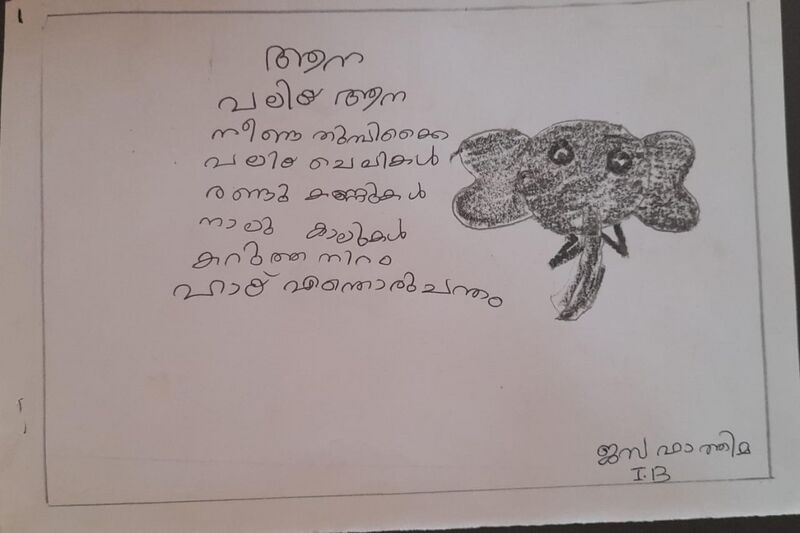 1
ആന
വലിയ ആന
നീണ്ട തുമ്പിക്കൈ
വലിയ ചെവികൾ
രണ്ടു കണ്ണുകൾ
നാലു കാലുകൾ
കറുത്ത നിറം
ഹായ് എന്തൊൽ ചന്തം
ജസ ഫാത്തിമ
I.B